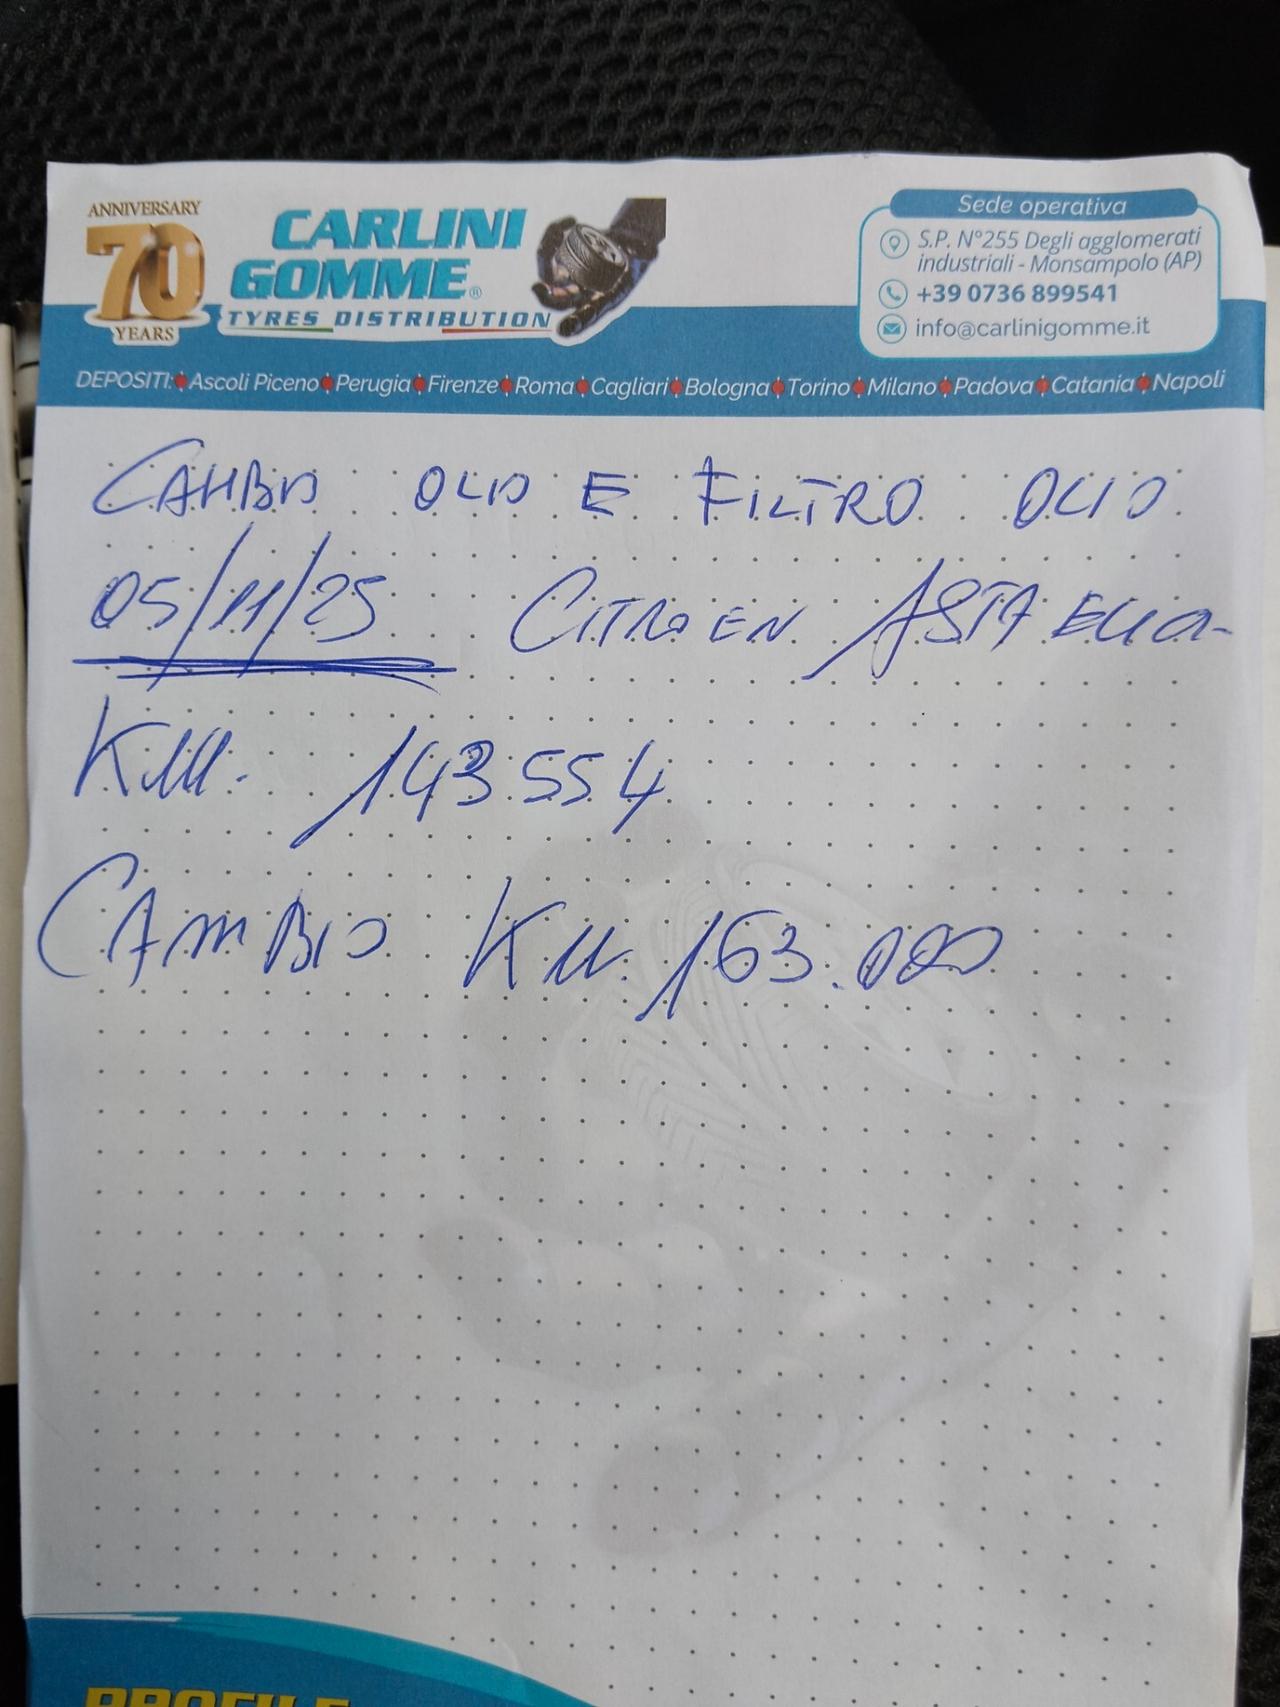 ANNIVERSARY
70
YEARS
CARLINI
GOMME®
TYRES DISTRIBUTION
Sede operativa
S.P. N°255 Degli agglomerati
industriali - Monsampolo (AP)
+39 0736 899541
info@carlinigomme.it
DEPOSITI: Ascoli Piceno Perugia Firenze Roma Cagliari Bologna Torino Milano Padova Catania Napoli
CAMBIO OLIO E FILTRO OLIO
05/11/25 CITROEN
KM. 143554
CAMBIO KM. 163.000
PROFILE